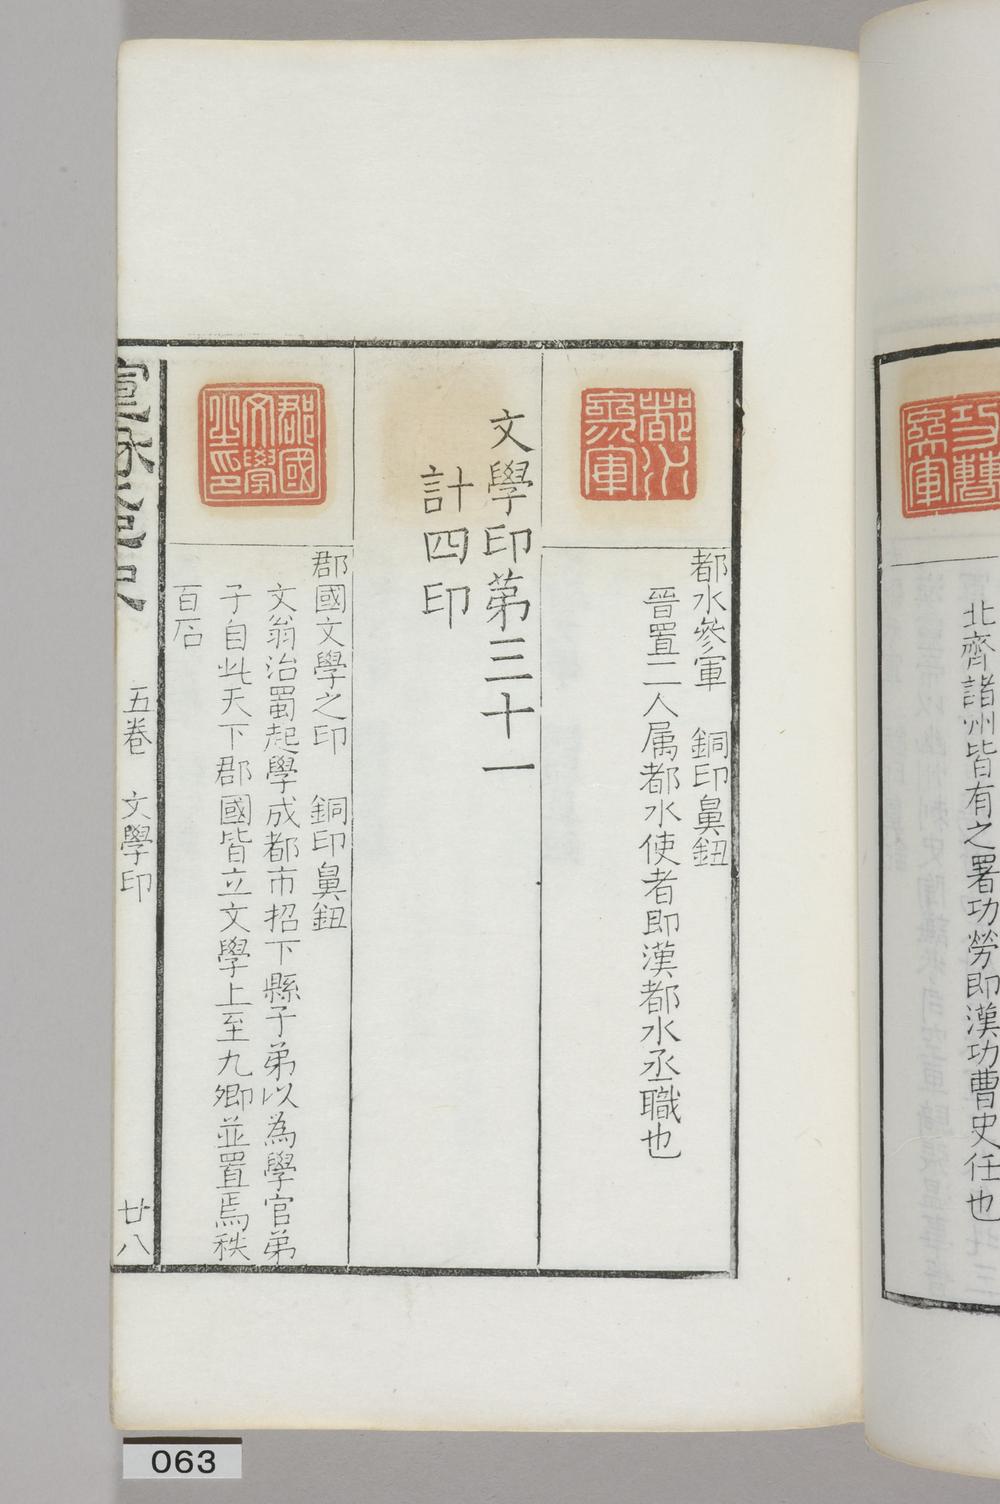 北齊諸州皆有之署功勞即漢功曹史任也
都水參軍
都水參軍 銅印鼻鈕
晉置二人属都水使者即漢都水丞職也
文學印第三十一
計四印
郡國文學之印
郡國文學之印 銅印鼻鈕
文翁治蜀起學成都市招下縣子弟以為學官弟
子自此天下郡國皆立文學上至九卿並置焉秩
百石
五卷 文學印 廿八
063